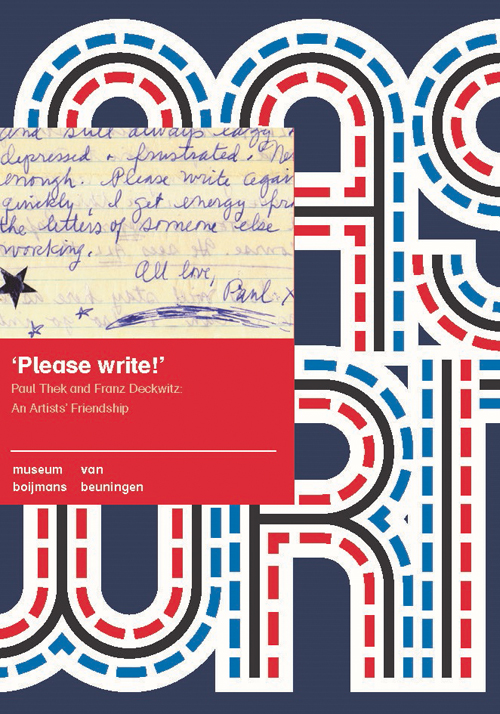 and still always
depressed + frustrated.
enough. Please write again
quickly, I get energy
the letters of someone else
working.
All love,
Paul X
'Please write!'
Paul Thek and Franz Deckwitz:
An Artists' Friendship
museum van
boijmans beuningen